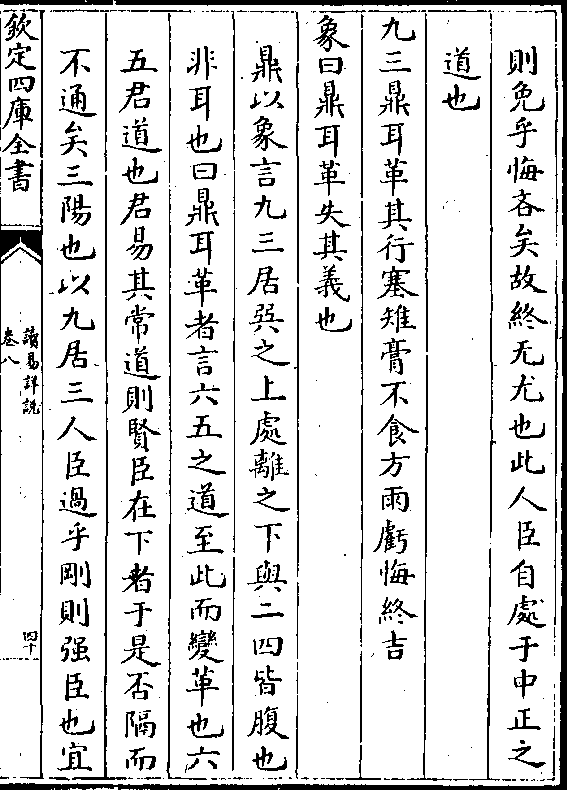 則免乎悔吝矣故終无尤也此人臣自處于中正之
道也
九三鼎耳革其行塞雉膏不食方雨虧悔終吉
象曰鼎耳革失其義也
鼎以象言九三居巽之上處離之下與二四皆腹也
非耳也曰鼎耳革者言六五之道至此而變革也六
五君道也君易其常道則賢臣在下者于是否隔而
不通矣三陽也以九居三人臣過乎剛則强臣也宜
欽定四庫全書
讀易詳說
卷八
四十